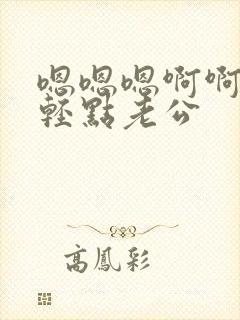 嗯嗯嗯啊啊
輕點老公
高鳳彩